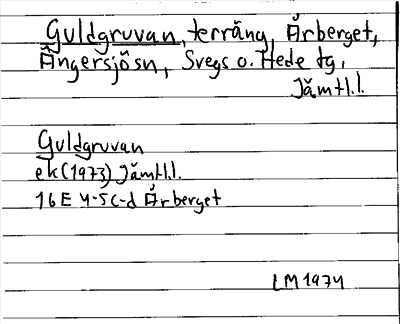 Guldgruvan, terräng, Årberget,
Ängersjösn, Svegs o. Hede tg,
Jämtl.l.
Guldgruvan
ek(1973) Jämtl.l.
16E 4-5c-d Årberget
LM1974